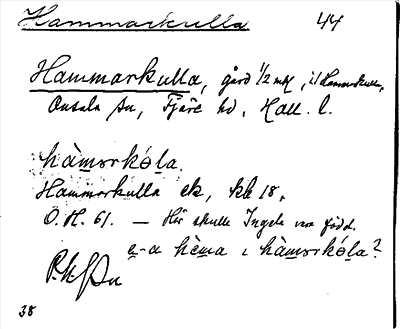 Hammarkulla 44
Hammarkulla, gård 1/2 mtl, i Hammarkulla,
Onsala sn, Fjäre hd, Hall. l.
hàmərkóla.
Hammarkulla ek, kb 18,
O. H. 61. — Här skulle Ingela vara född.
a hèma i hàmərkóla?
38